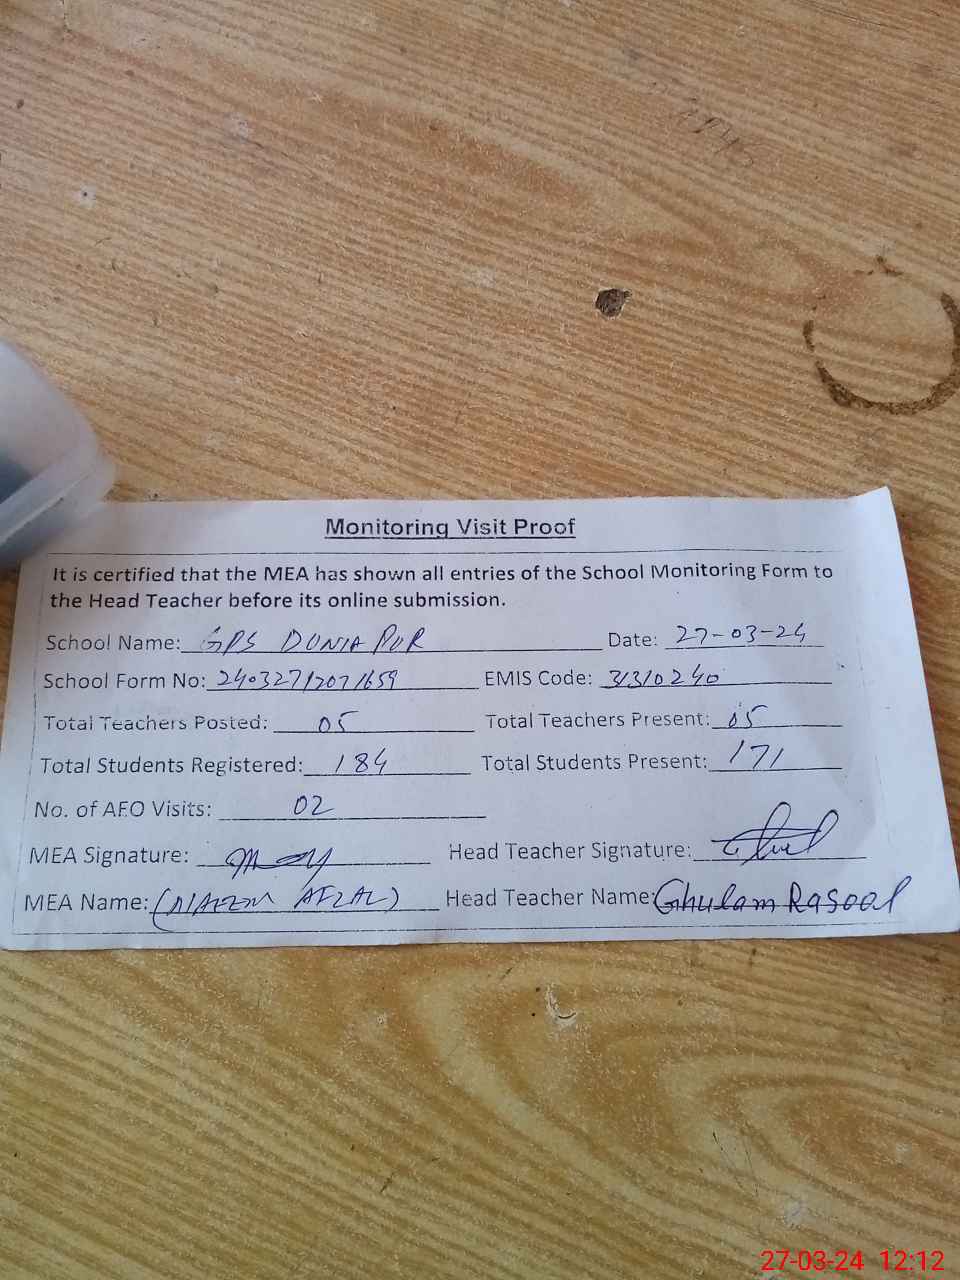 Monitoring Visit Proof
It is certified that the MEA has shown all entries of the School Monitoring Form to
the Head Teacher before its online submission.
School Name: GPS DUNIA PUR Date: 27-03-24
School Form No: 24032712071659 EMIS Code: 31310240
Total Teachers Posted: 05 Total Teachers Present: 05
Total Students Registered: 184 Total Students Present: 171
No. of AEO Visits: 02
MEA Signature: Head Teacher Signature:
MEA Name: AFZAL) Head Teacher Name: Ghulam Rasool
27-03-24 12:12